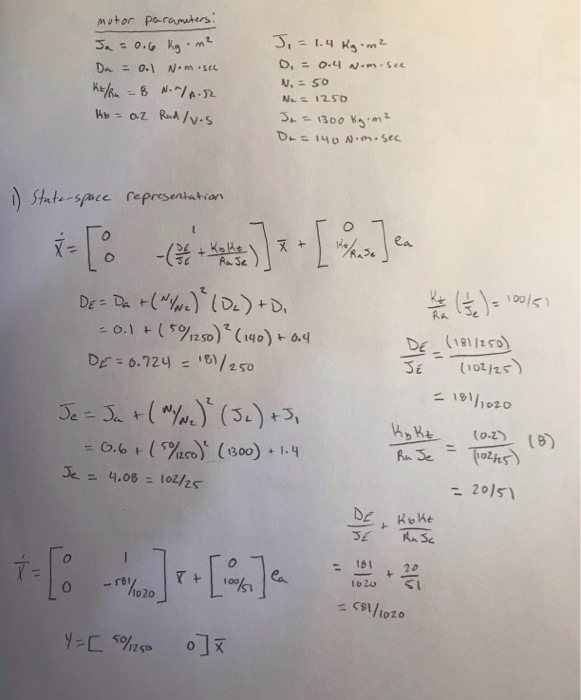 motor parameters:
Ja = 0.6 Kg·m²
Da = 0.1 N·m·sec
Kt/Ra = 8 N·m/A·Ω
Kb = 0.2 Rad/V·s
J₁ = 1.4 Kg·m²
D₁ = 0.4 N·m·sec
N₁ = 50
N₂ = 1250
JL = 1300 Kg·m²
DL = 140 N·m·sec
1) State-space representation
ẋ̄ = [0 1; 0 -(DE/JE + KbKt/RaJe)] x̄ + [0; Kt/RaJe] ea
DE = Da + (N₁/N₂)² (DL) + D₁
= 0.1 + (50/1250)² (140) + 0.4
DE = 0.724 = 181/250
Je = Ja + (N₁/N₂)² (JL) + J₁
= 0.6 + (50/1250)² (1300) + 1.4
Je = 4.08 = 102/25
Kt/Ra (1/Je) = 100/51
DE/JE = (181/250)/(102/25)
= 181/1020
KbKt/RaJe = (0.2)/(102/25) (8)
= 20/51
DE/JE + KbKt/RaJe
= 181/1020 + 20/51
= 581/1020
ẋ̄ = [0 1; 0 -581/1020] x̄ + [0; 100/51] ea
Y = [50/1250 0] x̄